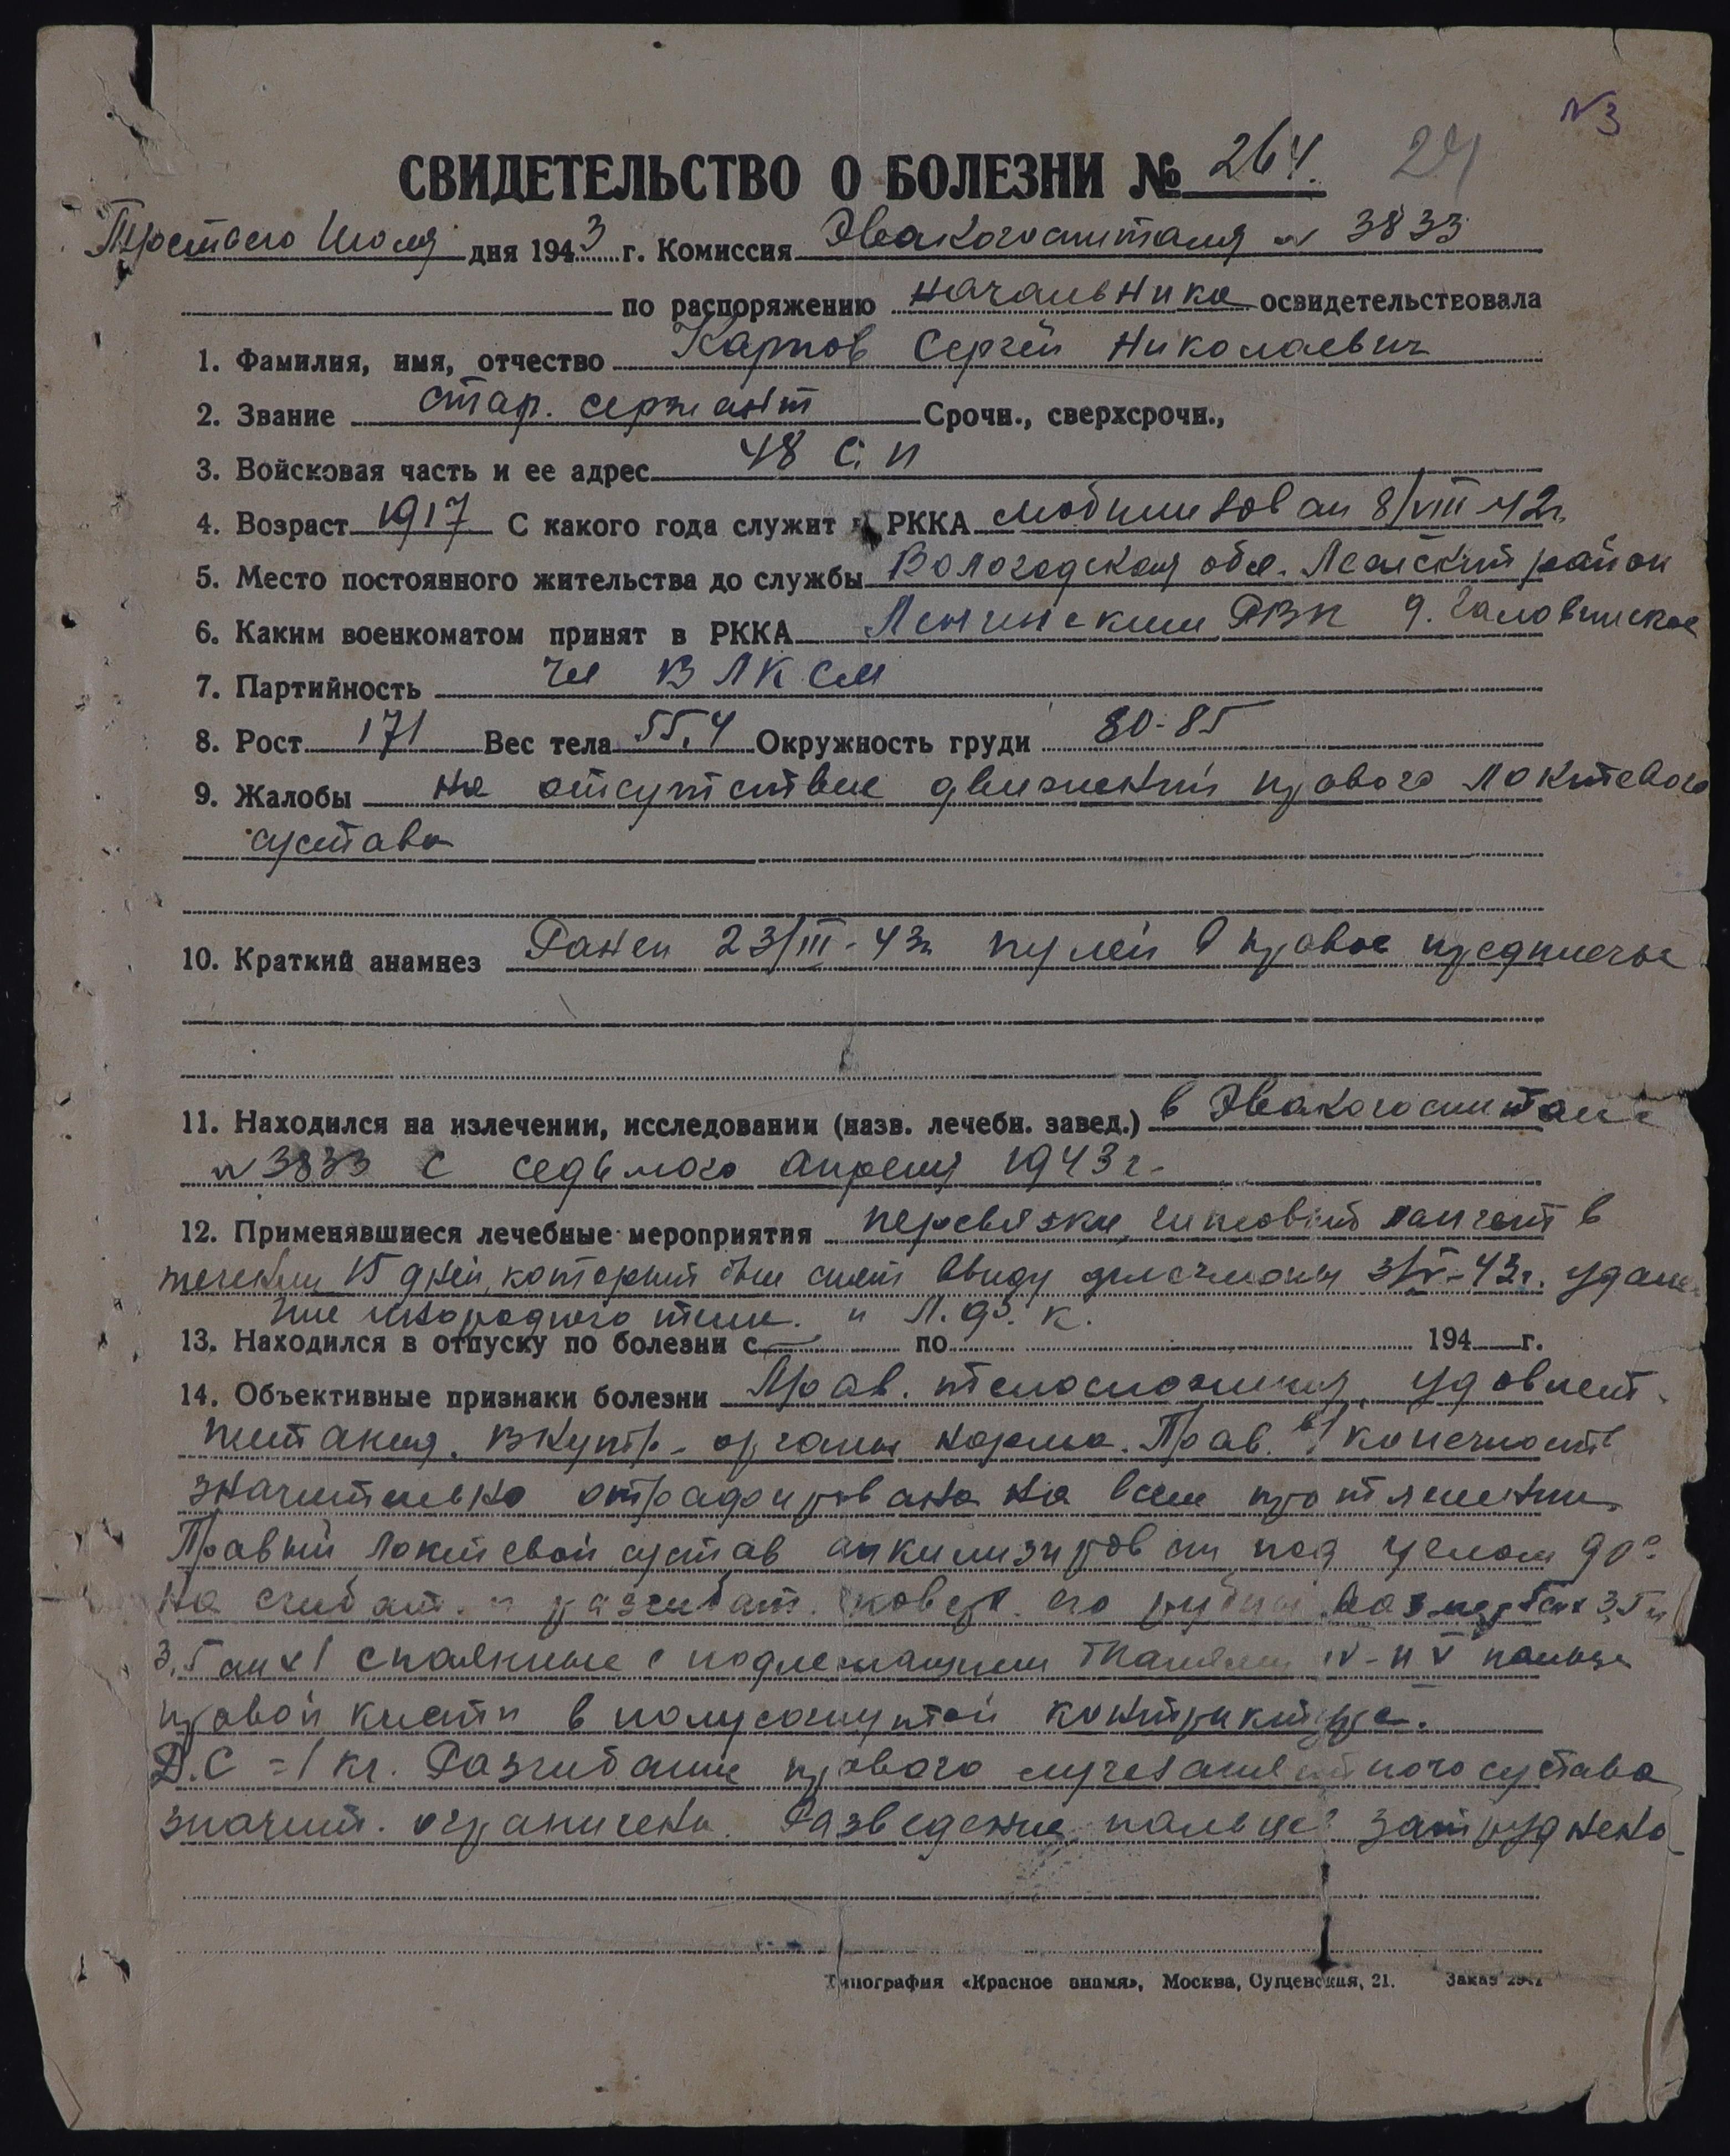 №3
СВИДЕТЕЛЬСТВО О БОЛЕЗНИ № 264. 24
Третьего Июля дня 1943 г. Комиссия Эвакогоспиталя № 3833
по распоряжению начальника освидетельствовала
1. Фамилия, имя, отчество Карпов Сергей Николаевич
2. Звание стар. сержант Срочн., сверхсрочн.,
3. Войсковая часть и ее адрес 48 с. п
4. Возраст 1917 С какого года служит в РККА мобилизован 8/VIII-42г.
5. Место постоянного жительства до службы Вологодская обл. район
6. Каким военкоматом принят в РККА РВК д.
7. Партийность чл ВЛКСМ
8. Рост 171 Вес тела 55,4 Окружность груди 80-85
9. Жалобы на отсутствие движений правого локтевого
сустава
10. Краткий анамнез Ранен 23/III-43г пулей в правое предплечье
11. Находился на излечении, исследовании (назв. лечебн. завед.) в Эвакогоспитале
№ 3833 с седьмого апреля 1943 г.
12. Применявшиеся лечебные мероприятия перевязки, гипсовый лангет в
течении 15 дней, который был снят ввиду флегмоны 3/V-43г. удале-
ние инородного тела. и Л.Ф.К.
13. Находился в отпуску по болезни с по 194 г.
14. Объективные признаки болезни Прав. телосложения, удовлет.
питания. Внутр. органы норма. Прав. в/конечность
значительно атрофирована на всем протяжении.
Правый локтевой сустав анкилизирован под углом 90°.
На сгибат. и разгибат. поверх. его рубцы размером 3,5 и
3,5 см х 1 спаянные с подлежащими тканями IV-и V пальцы
правой кисти в полусогнутой контрактуре.
Д.С = 1 кг. Разгибание правого лучезапястного сустава
значит. ограничен. Разведение пальцев затруднено
Типография «Красное знамя», Москва, Сущевская, 21. Заказ